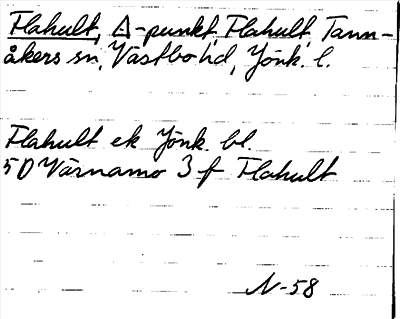 Flahult, Δ-punkt, Flahult, Tann-
åkers sn, Västbo hd, Jönk. l.
Flahult ek Jönk. bl.
5D Värnamo 3 f Flahult
N-58